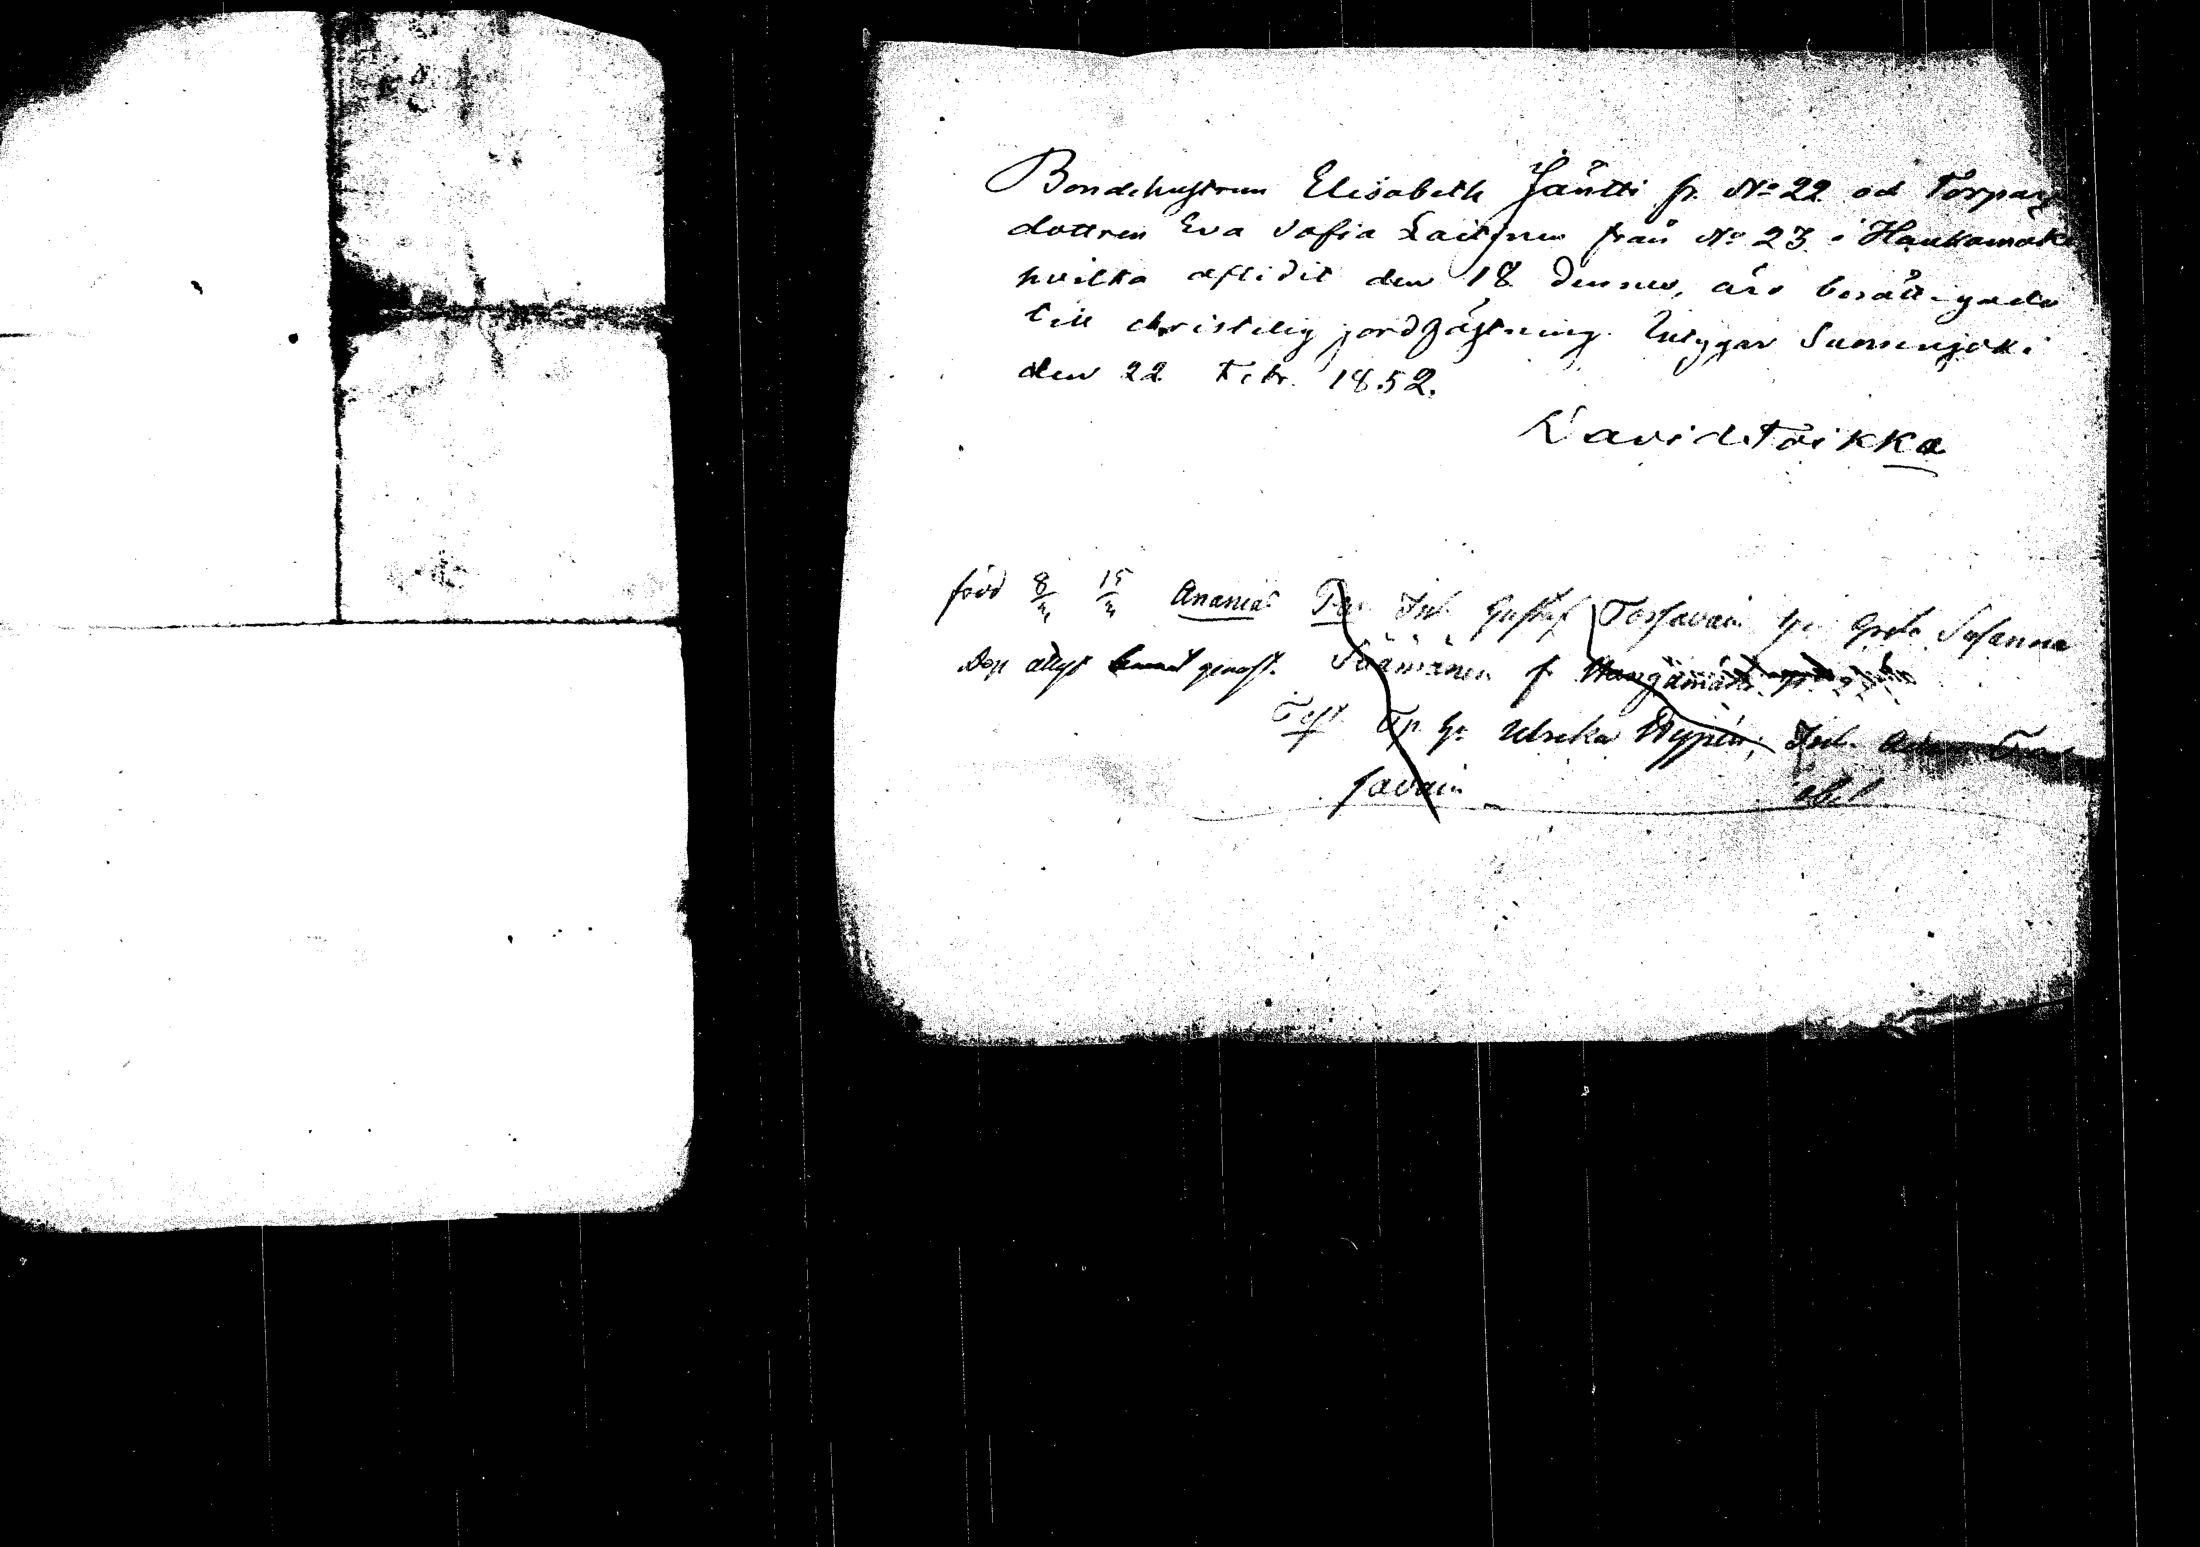 Bondehustrun Elisabeth Jäntti fr. No 22 och Torpare
dottren Eva Sofia Laitinen från No 23 i Haukamäki
hvilka aflidit den 18 dennes, äro berättigade
till christelig jordfästning. Intygar Suonenjoki
den 22 Febr. 1852.
David Toikka
född 8/2 15/2 Ananias Inh. Gustaf Torsavain h: Greta Susanna
Döp genast.
Test Tp. h: Ulrika Inh.
savain